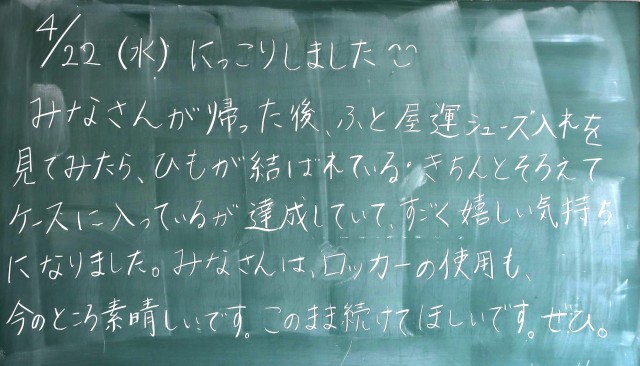 4/22 (水) にっこりしました
みなさんが帰った後、ふと屋運シューズ入れを
見てみたら、ひもが結ばれている・きちんとそろえて
ケースに入っているが達成していて、すごく嬉しい気持ち
になりました。みなさんは、ロッカーの使用も、
今のところ素晴しいです。このまま続けてほしいです。ぜひ。